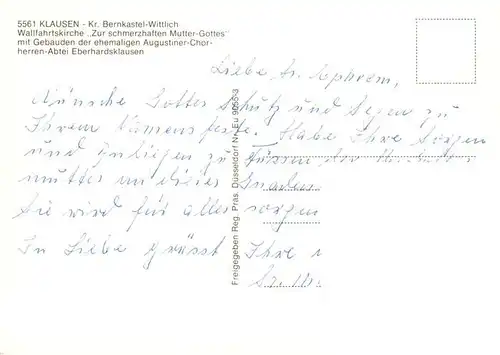 5561 KLAUSEN - Kr. Bernkastel-Wittlich
Wallfahrtskirche „Zur schmerzhaften Mutter-Gottes"
mit Gebäuden der ehemaligen Augustiner-Chor-
herren-Abtei Eberhardsklausen
Liebe Sr. Ephrem,
Wünsche Gottes Schutz und Segen zu
Ihrem Namensfeste. Habe Ihre Sorgen
und Anliegen zu Füssen der
mutter an dieses Gnaden
Sie wird für alles sorgen
In Liebe grüsst Ihre
Sr. M.
Freigegeben Reg. Präs. Düsseldorf Nr. Eu 905-3